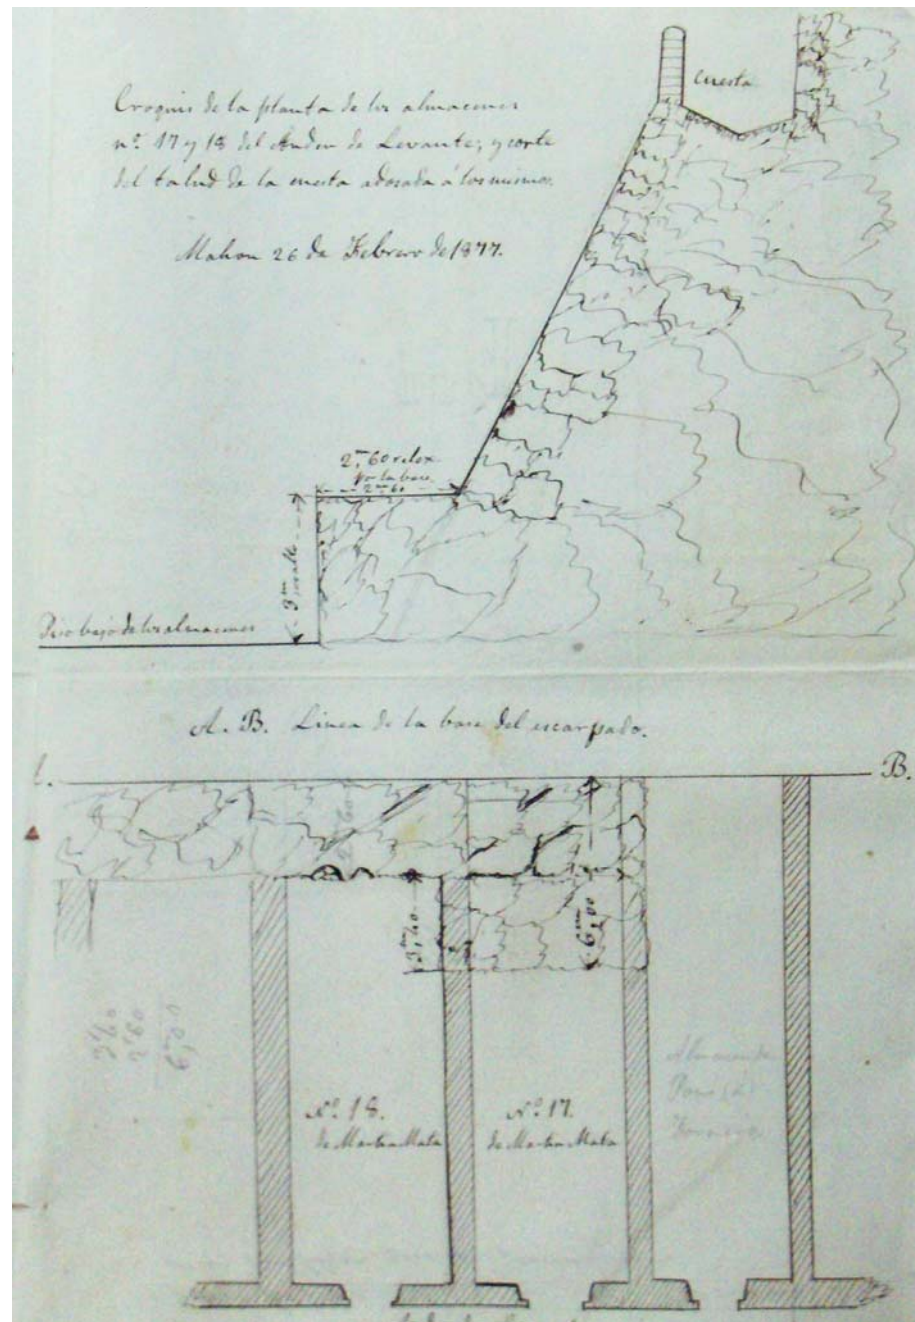 Croquis de la planta de los almacenes
nº. 17 y 18 del Anden de Levante; y corte
del talud de la cuesta adosada á los mismos.
Mahon 26 de Febrero de 1877.
Cuesta
2,m60 relex
por la base
2,m60
3m
Piso bajo de los almacenes
A. B. Linea de la base del escarpado.
B.
2,60
3,m40
6,m00
2,60
6,00
Nº. 18.
de Martin Mata
Nº. 17.
de Martin Mata
Almacen de